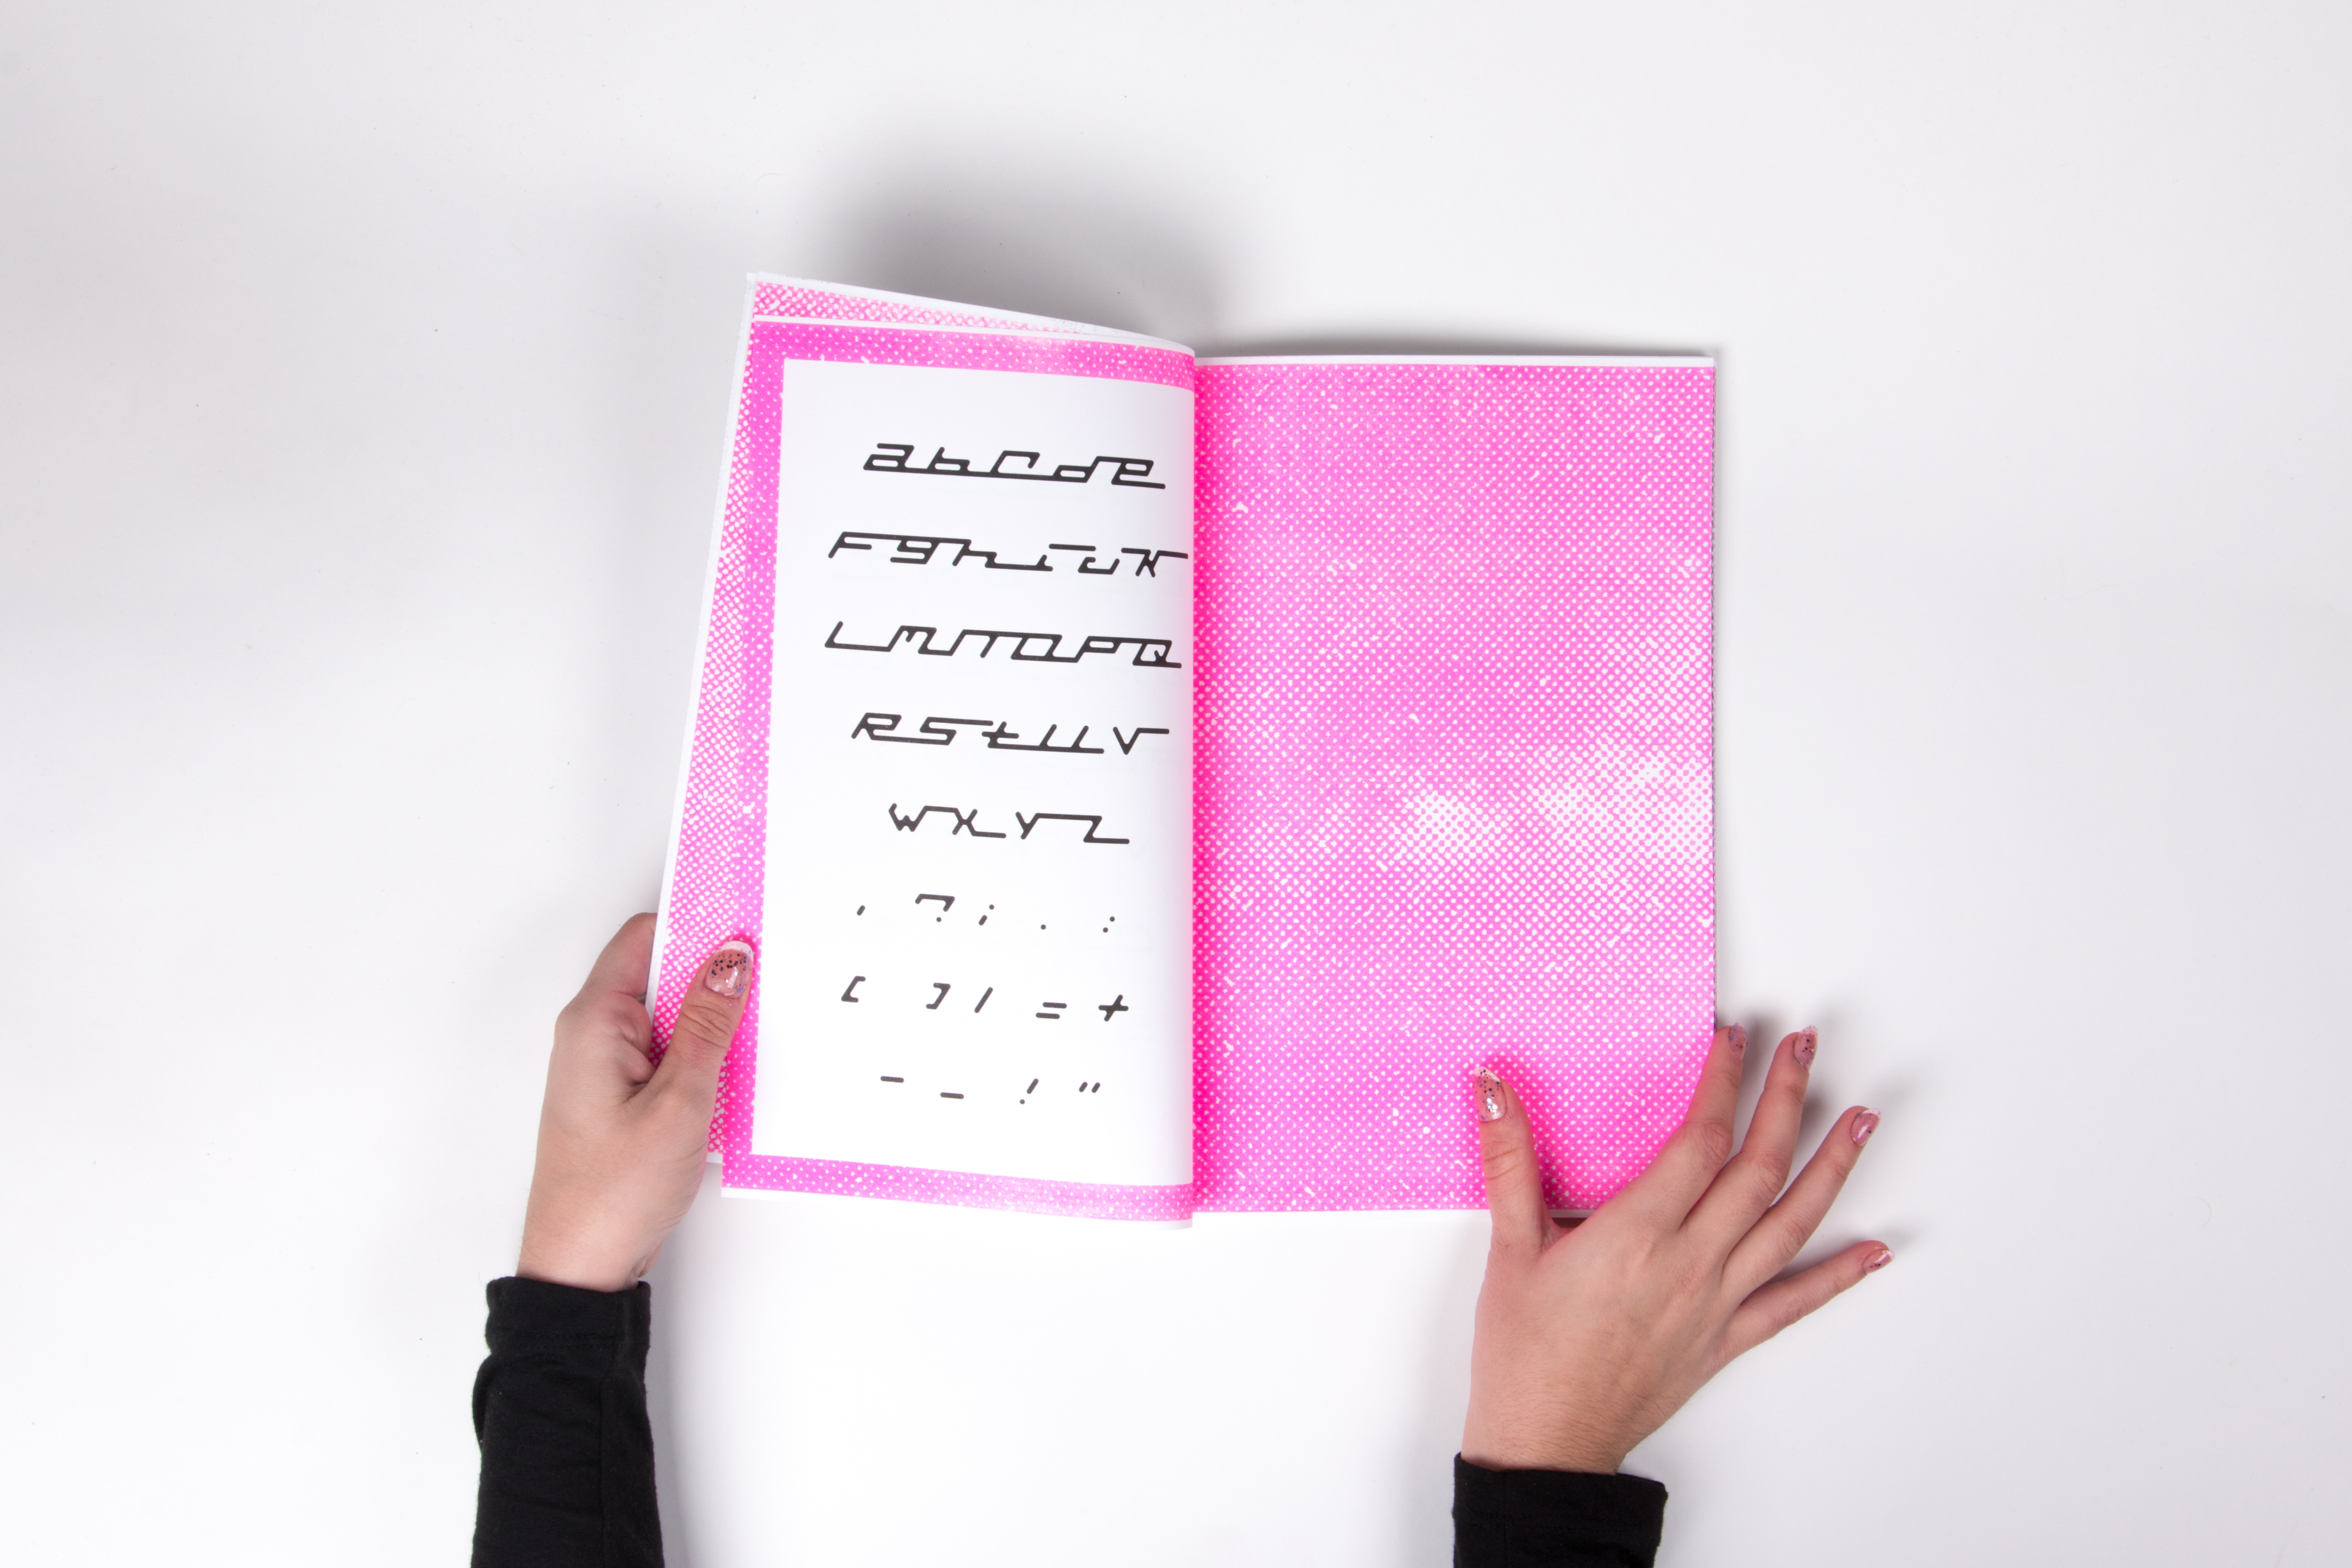 abcde
fghijk
lmnopq
rstuv
wxyz
, ? ; . :
[ ] / = +
- _ ! "